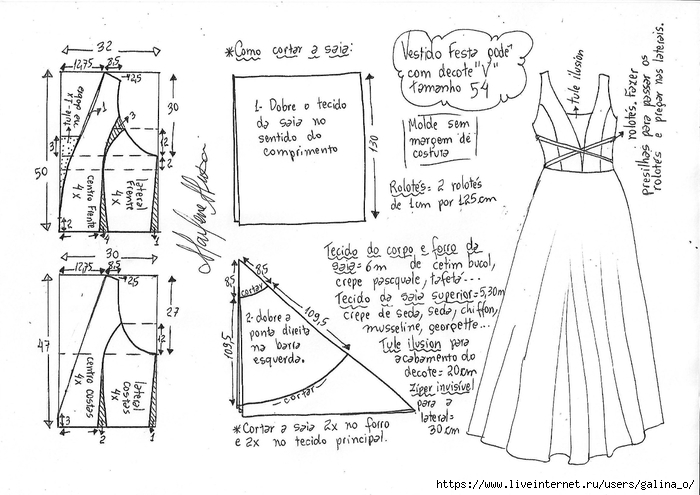 32
12,75 8,5
2,5
30
3
1
3
12
2
50
Tule na
dobra
centro Frente
4x
lateral
Frente
4x
2
4
1
30
12,75 8,5
2,5
27
12
47
centro costas
4x
lateral
Costas
4x
3
2
1
Marlene Mukai
*Como cortar a saia:
1- Dobre o tecido
da saia no
sentido do
comprimento
130
8,5
8,5
cortar
109,5
109,5
2- dobre a
ponta direita
na barra
esquerda.
cortar
*Cortar a saia 2x no forro
e 2x no tecido principal.
Vestido Festa pode
com decote "V"
Tamanho 54
Molde sem
margem de
costura
Rolotês= 2 rolotês
de 1cm por 125cm
Tecido do corpo e forro da
saia= 6m de cetim bucol,
crepe pasquale, tafetá...
Tecido da saia superior= 5,30m
crepe de seda, seda, chiffon,
musseline, georgette...
Tule ilusion para
acabamento do
decote= 20cm
Ziper invisível
para a
lateral=
30cm
tule ilusion
rolotês. Fazer
presilhas para passar os
rolotês e pregar nas laterais.
https://www.liveinternet.ru/users/galina_o/